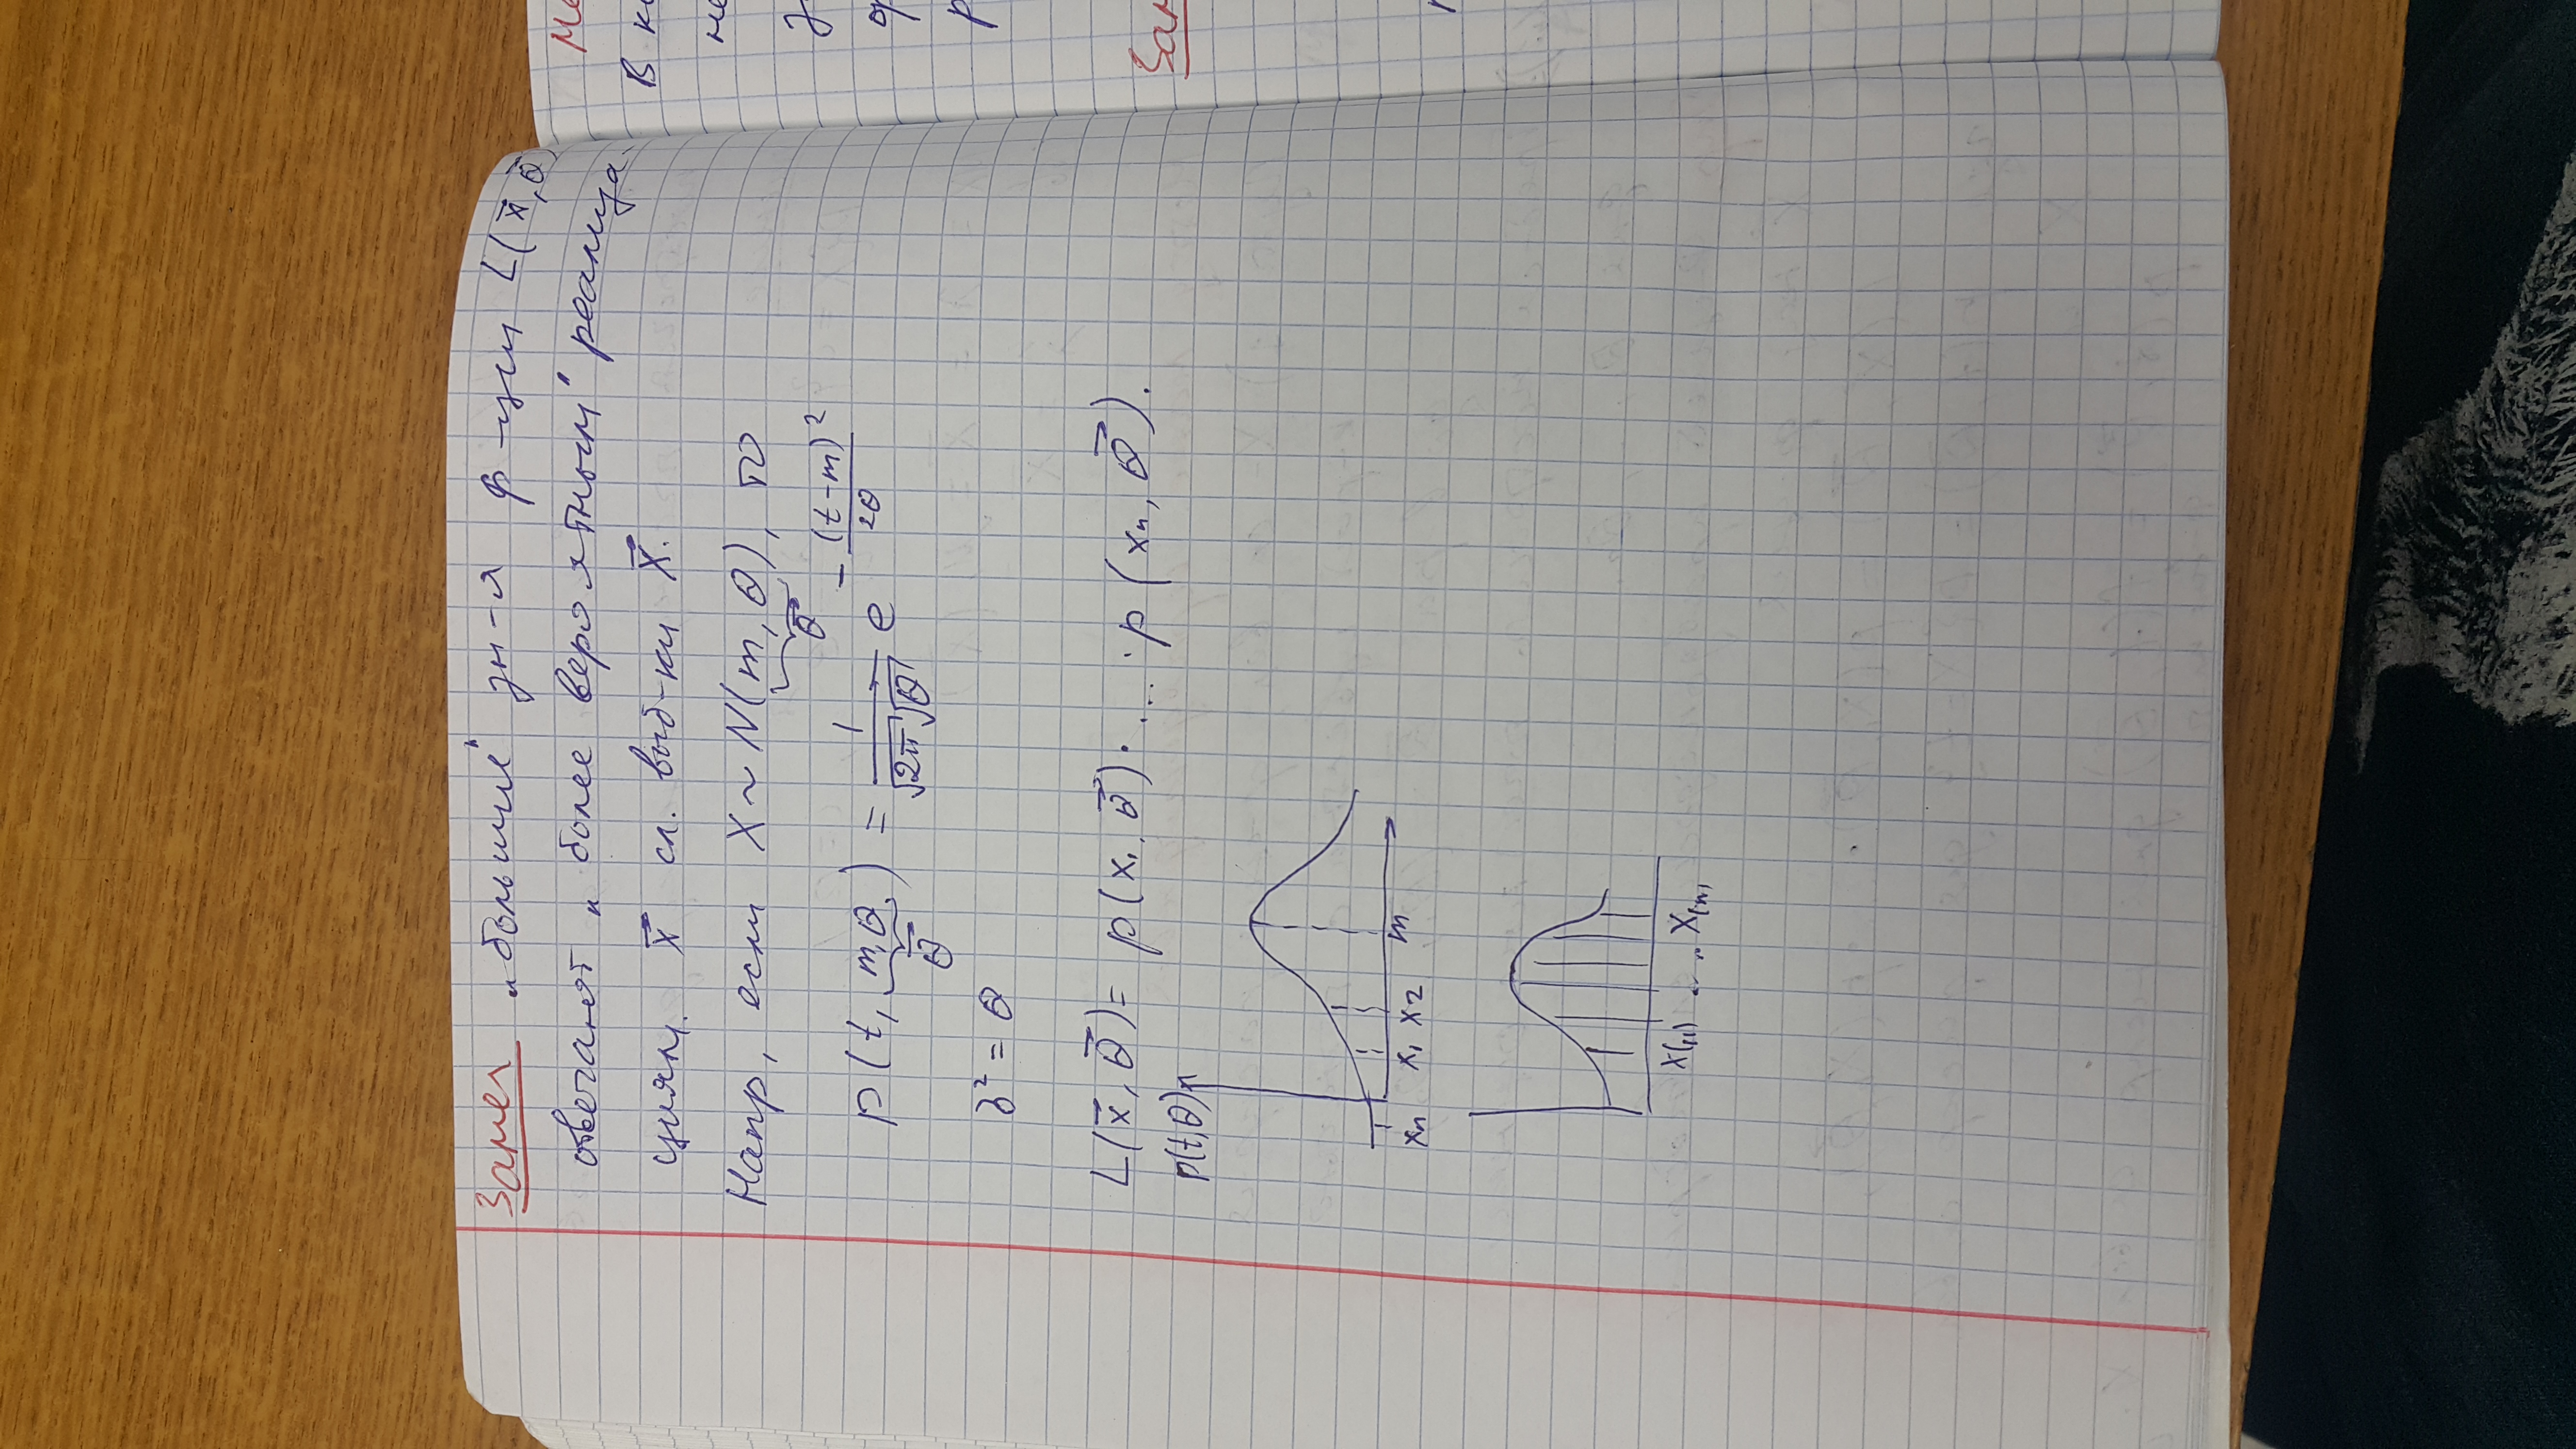 Замеч „большие" зн-я ф-ции L(x⃗, θ⃗)
отвечают „более вероятным" реализа-
циям. x⃗ сл. выб-ки X⃗.
Напр, если X ~ N(m, θ), то
θ⃗
p(t, m, θ) = 1/(√2π √θ) e^(-(t-m)²/2θ)
θ⃗
σ² = θ
L(x⃗, θ⃗) = p(x₁, θ⃗)· ... ·p(xₙ, θ⃗).
p(t,θ)
xₙ x₁ x₂ m
x₍₁₎ ... x₍ₙ₎
В
не
Зам